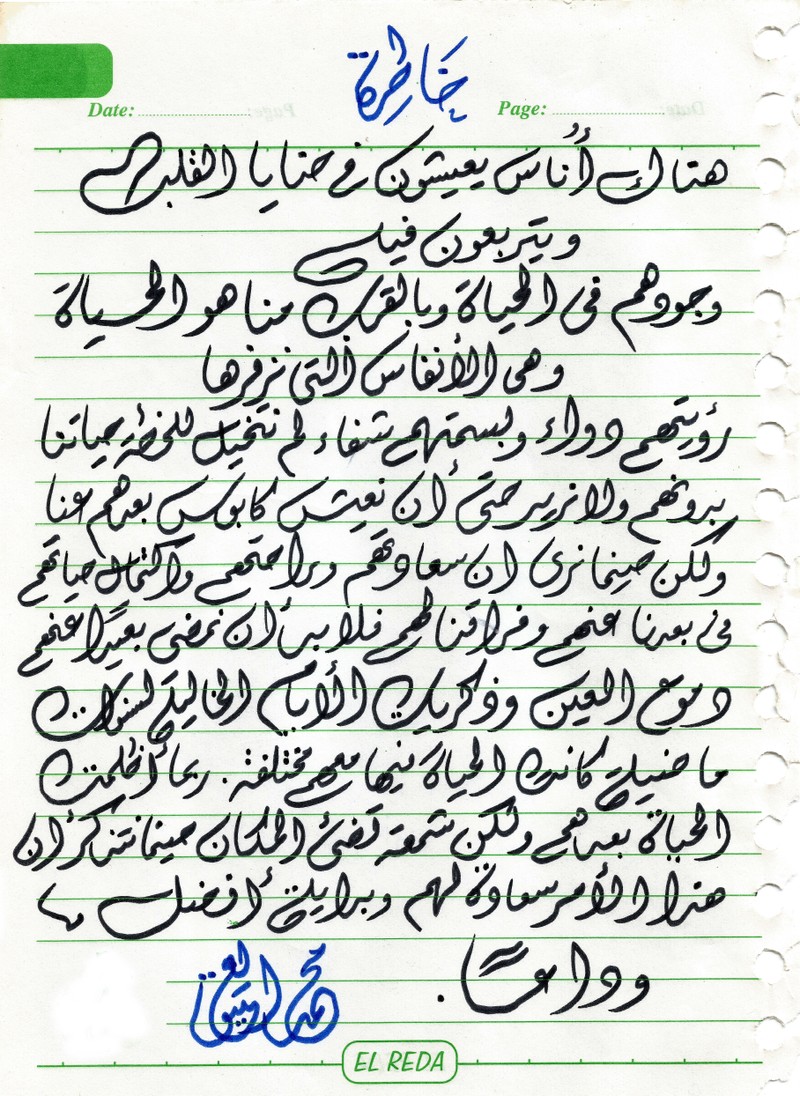 خاطرة
Date: Page:
هناك أُناس يعيشون في حنايا القلب
ويتربعون فيه
وجودهم في الحياة وبالقرب منا هو الحياة
وهى الأنفاس التي نزفرها
رؤيتهم دواء وبسمتهم شفاء لم نتخيل للحظة حياتنا
بدونهم ولا نريد حتى أن نعيش كابوس بعدهم عنا
ولكن حينما نرى ان سعادتهم وراحتهم واكتمال حياتهم
فى بعدنا عنهم وفراقنا لهم فلابد أن نمضى بعيدًا عنهم
دموع العين وذكريات الأيام الخالية لسنوات
ماضية كانت الحياة فيها معهم مختلفة. ربما أظلمت
الحياة بعدهم ولكن شمعة تضئ المكان حينما نتذكر أن
هذا الأمر سعادة لهم وبداية أفضل
وداعًا.
محمد
EL REDA